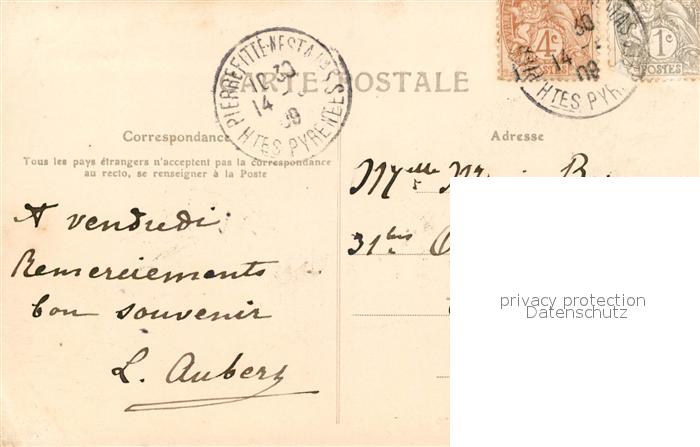 4c
POSTES
1c
POSTES
PIERREFITTE-NESTALAS
12 30
14
09
HTES PYRENEES
30
14
09
HTES PYR
CARTE POSTALE
Correspondance
Adresse
Tous les pays étrangers n'acceptent pas la correspondance
au recto, se renseigner à la Poste
A vendredi
Remerciements
bon souvenir
L. Aubery
Melle
31bis
privacy protection
Datenschutz